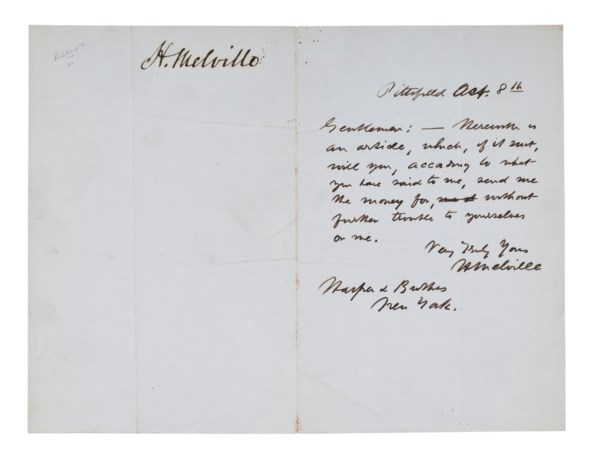 H. Melville
Pittsfield Oct. 8th
Gentlemen: — Herewith is
an article, which, if it suit,
will you, according to what
you have said to me, send me
the money for, without
further trouble to yourselves
or me.
Very Truly Yours
H Melville
Harper & Brothers
New York.